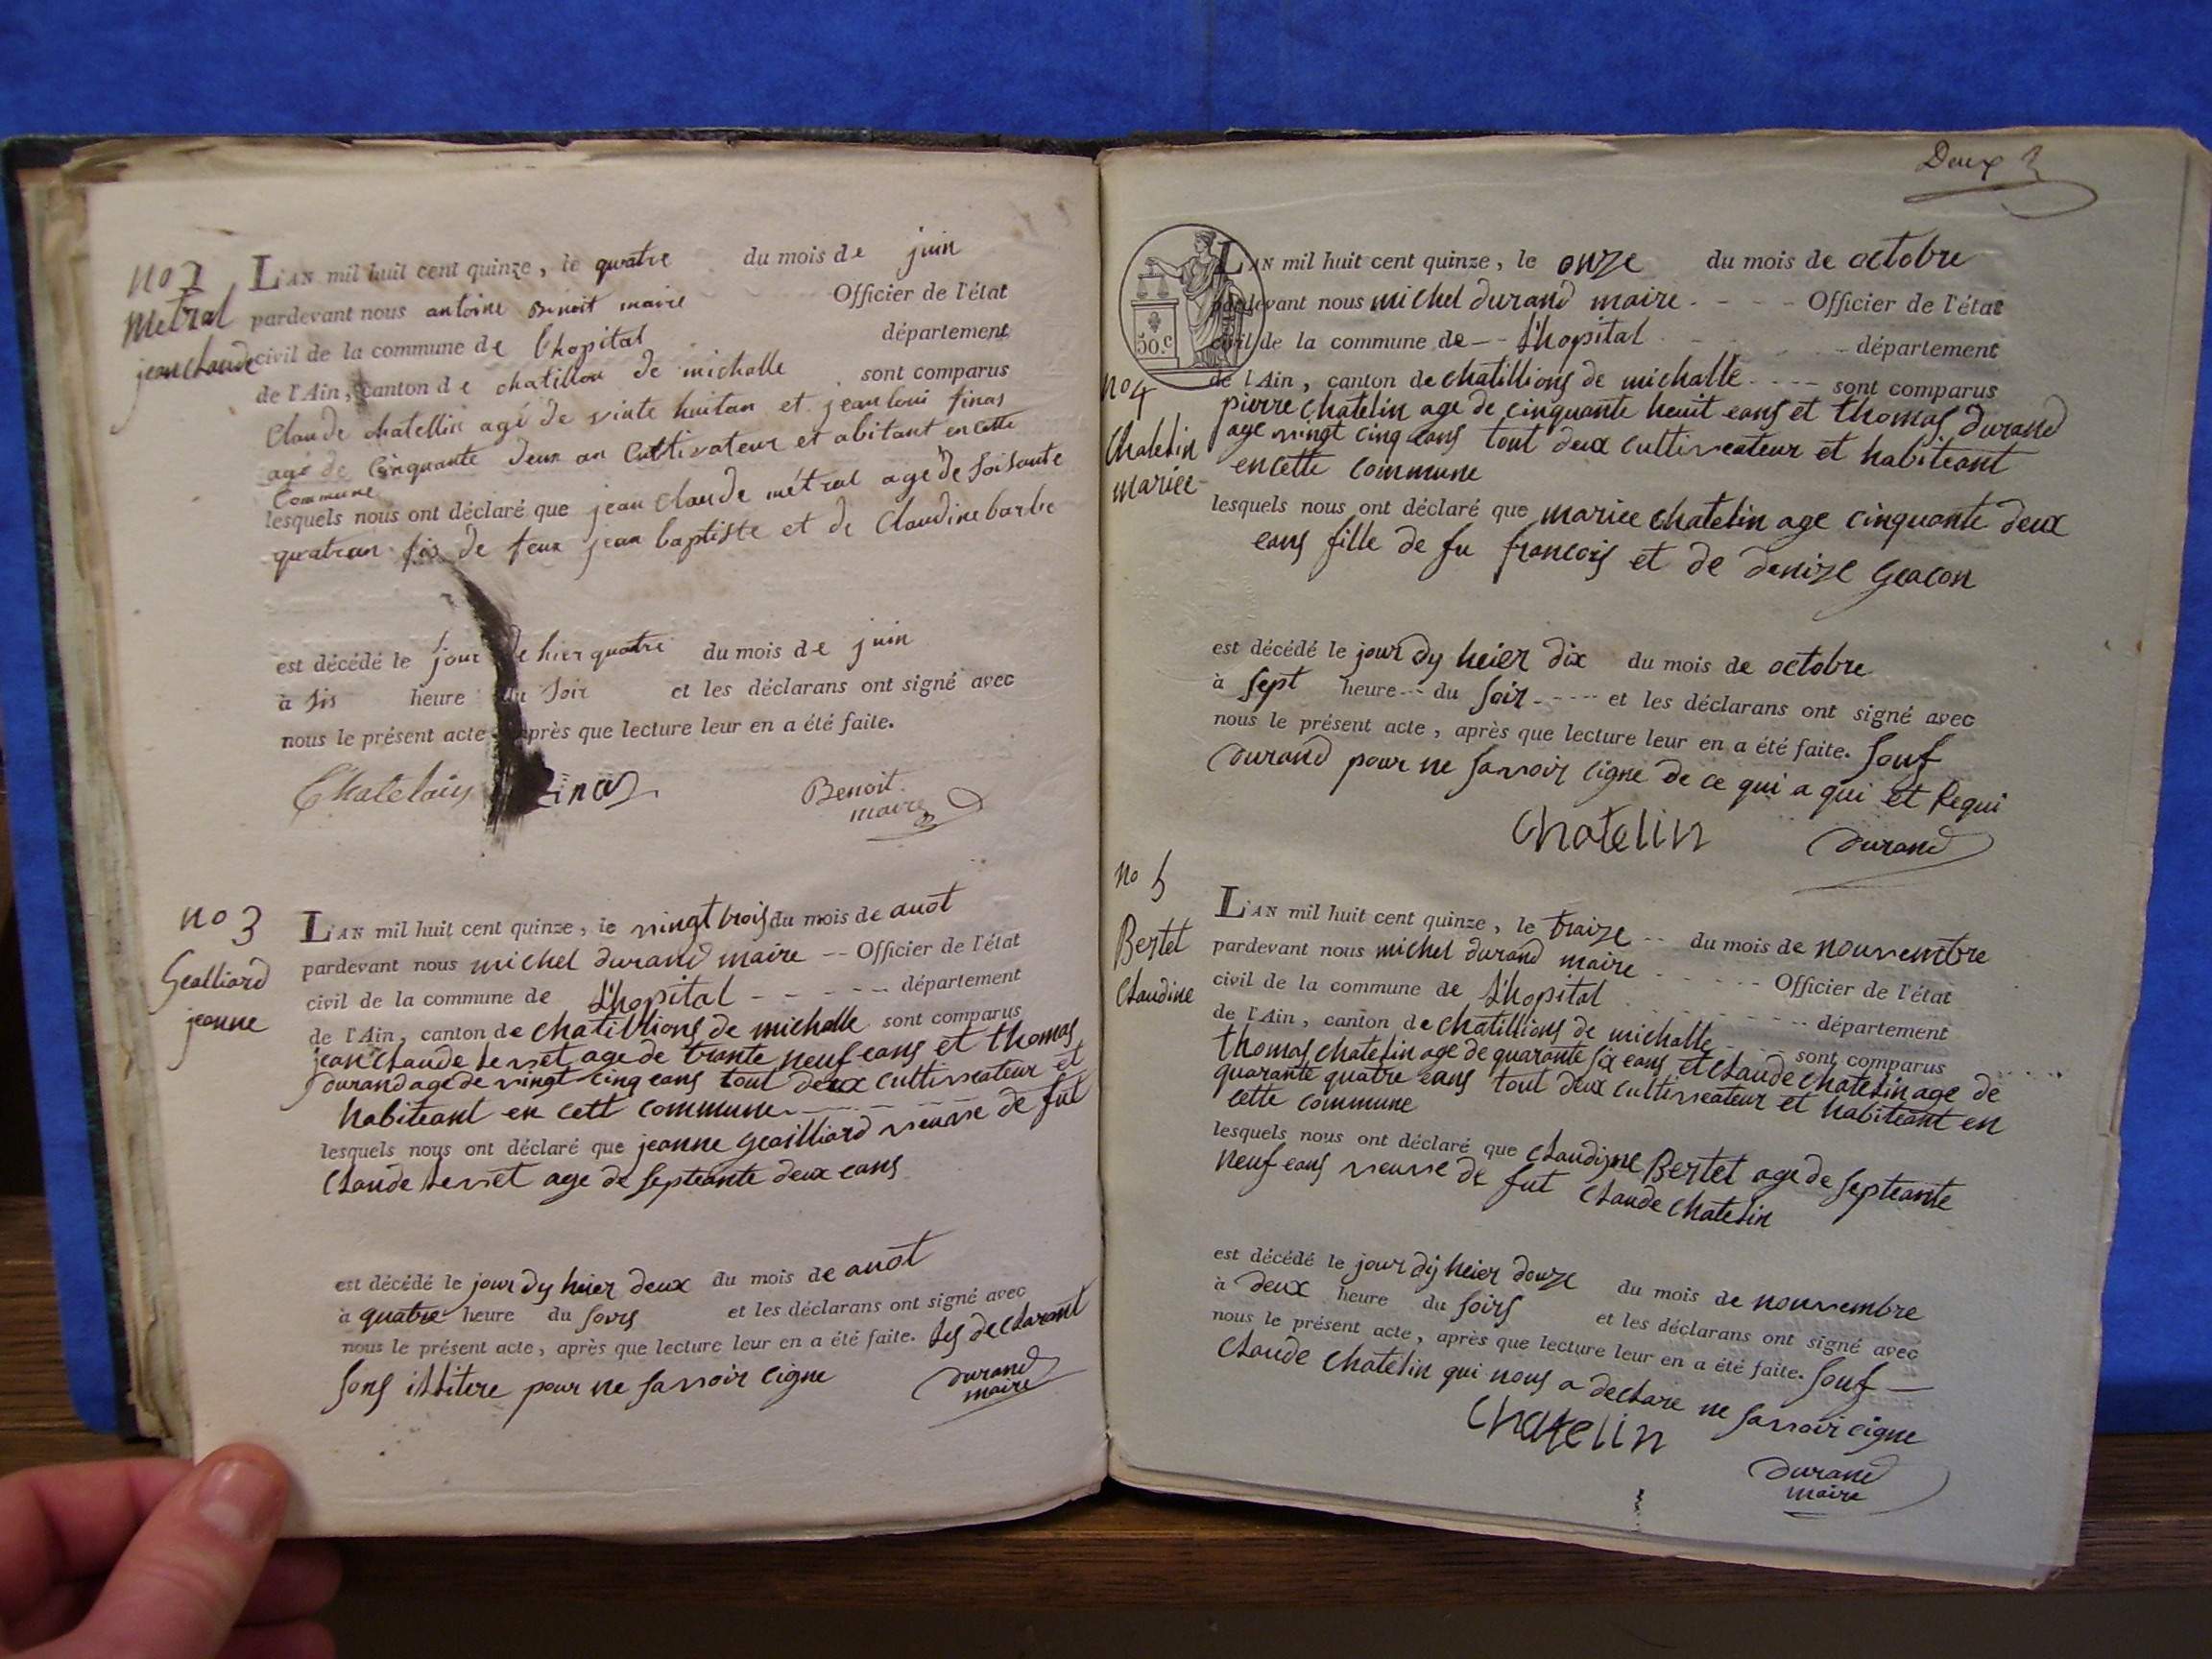 no 2
Metral
jean claude
L'AN mil huit cent quinze, le quatre du mois de juin
pardevant nous antoine Benoit maire Officier de l'état
civil de la commune de l'hopital département
de l'Ain, canton de chatillon de michalle sont comparus
Claude chatellin agé de vinte huitan et jean loui finas
agé de Cinquante deux an Cultivateur et abitant en cette
Commune
lesquels nous ont déclaré que jean claude métral agé de soisante
quatran fis de feux jean baptiste et de Claudine barbe
est décédé le jour de hier quatre du mois de juin
à sis heure du soir et les déclarans ont signé avec
nous le présent acte après que lecture leur en a été faite.
Chatelain finas Benoit
maire
no 3
Gealliard
jeanne
L'AN mil huit cent quinze, le vingt trois du mois de auot
pardevant nous michel durand maire -- Officier de l'état
civil de la commune de L'hopital - - - - - département
de l'Ain, canton de chatillions de michalle sont comparus
jean claude levret age de trante neuf eans et thomas
durand age de vingt cinq eans tout deux cultiveateur et
habiteant en cett commune
lesquels nous ont déclaré que jeanne geailliard veuve de fut
claude levret age de septeante deux eans
est décédé le jour dy heier deux du mois de auot
à quatre heure du soirs et les déclarans ont signé avec
nous le présent acte, après que lecture leur en a été faite. les declarant
sons illitere pour ne savoir cigne durand
maire
Deux
50.c
no 4
Chatelin
mariee
L'AN mil huit cent quinze, le onze du mois de octobre
pardevant nous michel durand maire - - - - Officier de l'état
civil de la commune de -- L'hopital département
de l'Ain, canton de chatillions de michalle - - - - sont comparus
pierre chatelin age de cinquante heuit eans et thomas durand
age vingt cinq eans tout deux cultiveateur et habiteant
en cette commune
lesquels nous ont déclaré que mariee chatelin age cinquante deux
eans fille de fu francois et de denize geacon
est décédé le jour dy heier dix du mois de octobre
à sept heure -- du soir - - - - et les déclarans ont signé avec
nous le présent acte, après que lecture leur en a été faite. souf
durand pour ne savoir cigne de ce qui a qui et requi
Chatelin durand
no 5
Bertet
claudine
L'AN mil huit cent quinze, le traize -- du mois de nouvembre
pardevant nous michel durand maire - - - - - Officier de l'état
civil de la commune de L'hopital département
de l'Ain, canton de chatillions de michalle sont comparus
thomas chatelin age de quarante six eans et claude chatelin age de
quarante quatre eans tout deux cultiveateur et habiteant en
cette commune
lesquels nous ont déclaré que claudine Bertet age de septeante
neuf eans veuve de fut claude chatelin
est décédé le jour dy heier douze du mois de nouvembre
à deux heure du soirs et les déclarans ont signé avec
nous le présent acte, après que lecture leur en a été faite. souf —
claude chatelin qui nous a declare ne savoir cigne
Chatelin durand
maire